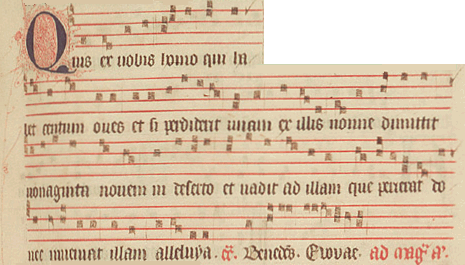 Quis ex vobis homo qui ha
bet centum oves et si perdiderit unam ex illis nonne dimittit
nonaginta novem in deserto et vadit ad illam que perierat do
nec inveniat illam alleluya. Evovae. ad